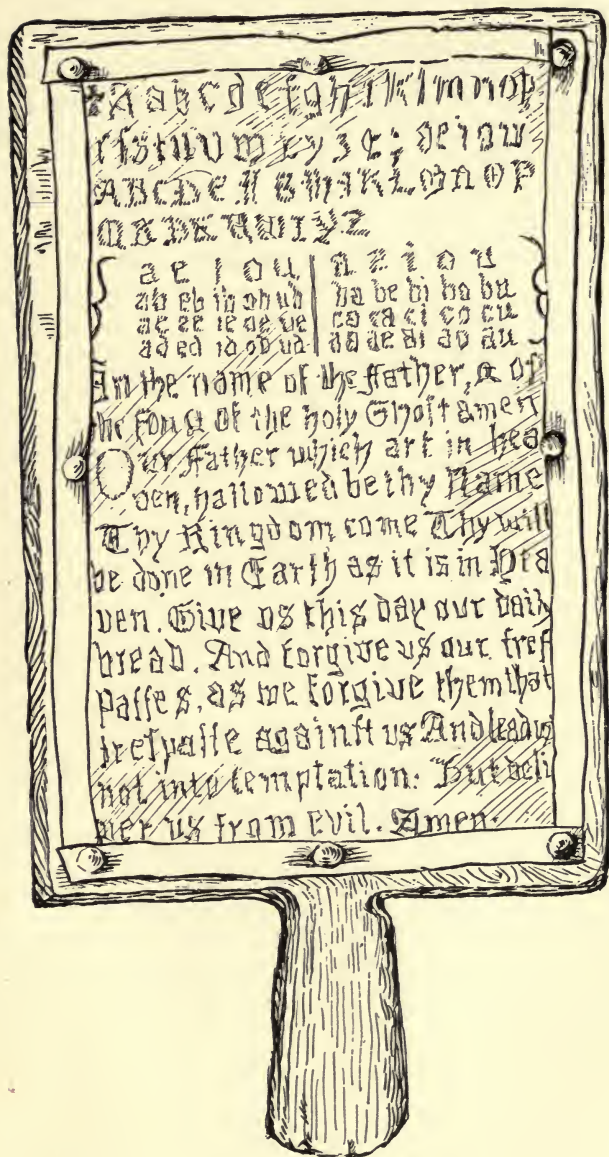 A a b c d e f g h i k l m n o p
r ſ s t u v w x y z & ; a e i o u
A B C D E F G H I K L M N O P
Q R S T U W X Y Z
a e i o u | a e i o u
ab eb ib ob ub | ba be bi bo bu
ac ec ic oc uc | ca ce ci co cu
ad ed id od ud | da de di do du
In the name of the Father, & of
the ſon & of the holy Ghoſt amen
Our Father which art in hea
ven, hallowed be thy Name
Thy Kingdom come Thy will
be done in Earth as it is in Hea
ven. Give vs this day our daily
bread. And forgive us our treſ
paſſes, as we forgive them that
treſpaſſe againſt vs And lead us
not into temptation: But deli
ver us from evil. Amen.